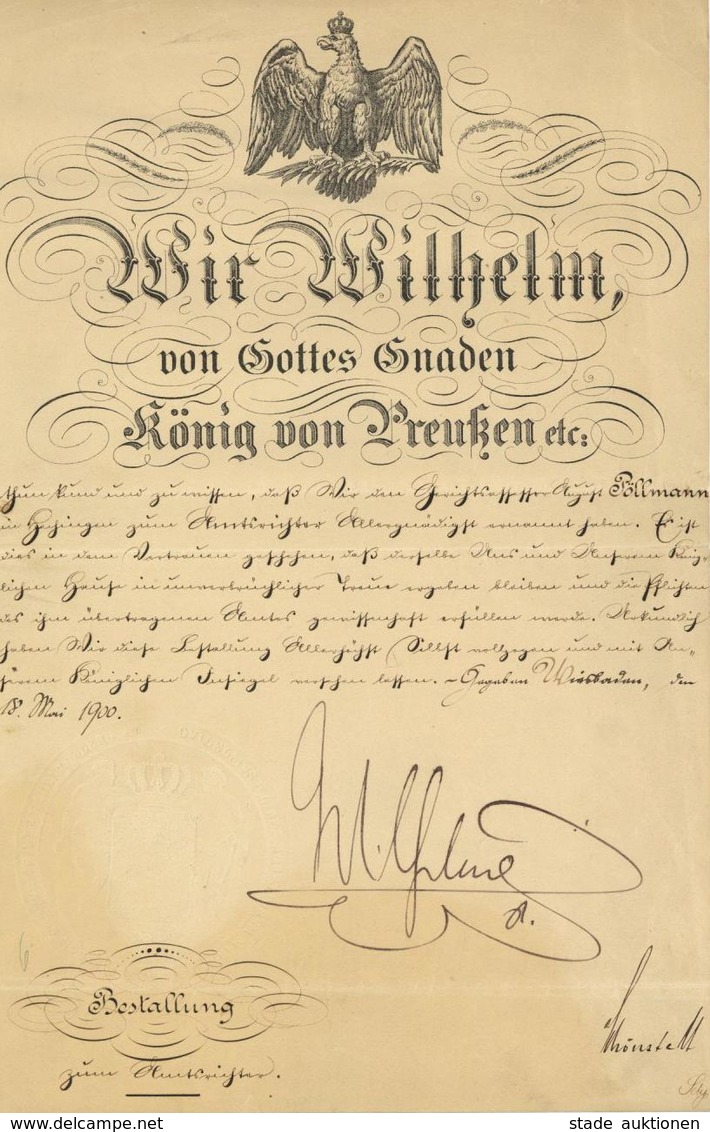 Wir Wilhelm,
von Gottes Gnaden
König von Preußen etc:
thun kund und zu wissen, daß Wir den Gerichtsassessor August Pöllmann
in Hechingen zum Amtsrichter Allergnädigst ernannt haben. Es ist
dies in dem Vertrauen geschehen, daß derselbe Uns und Unserem König-
lichen Hause in unverbrüchlicher Treue ergeben bleiben und die Pflichten
des ihm übertragenen Amtes gewissenhaft erfüllen werde. Urkundlich
haben Wir diese Bestallung Allerhöchst Selbst vollzogen und mit Un-
serem Königlichen Insiegel versehen lassen. – Gegeben Wiesbaden, den
18. Mai 1900.
Wilhelm
R.
6
Bestallung
zum Amtsrichter.
Schönstedt
stade auktionen